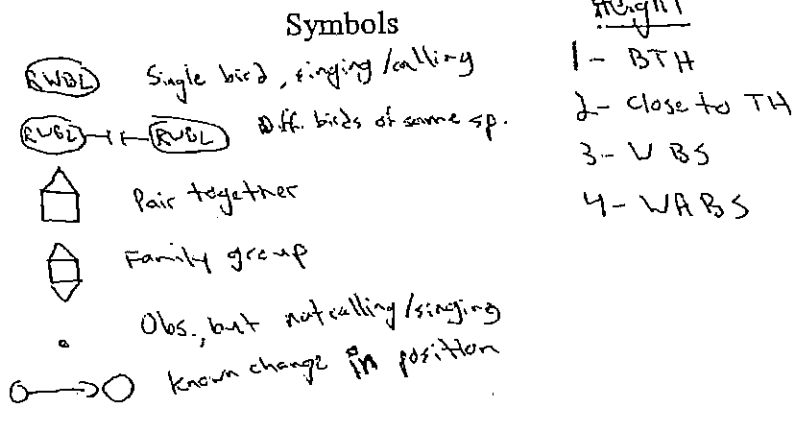 Symbols
RWBL Single bird, singing/calling
RWBL RWBL Diff. birds of same sp.
Pair together
Family group
Obs., but not calling/singing
Known change in position
Height
1- BTH
2- Close to TH
3- VBS
4- WABS